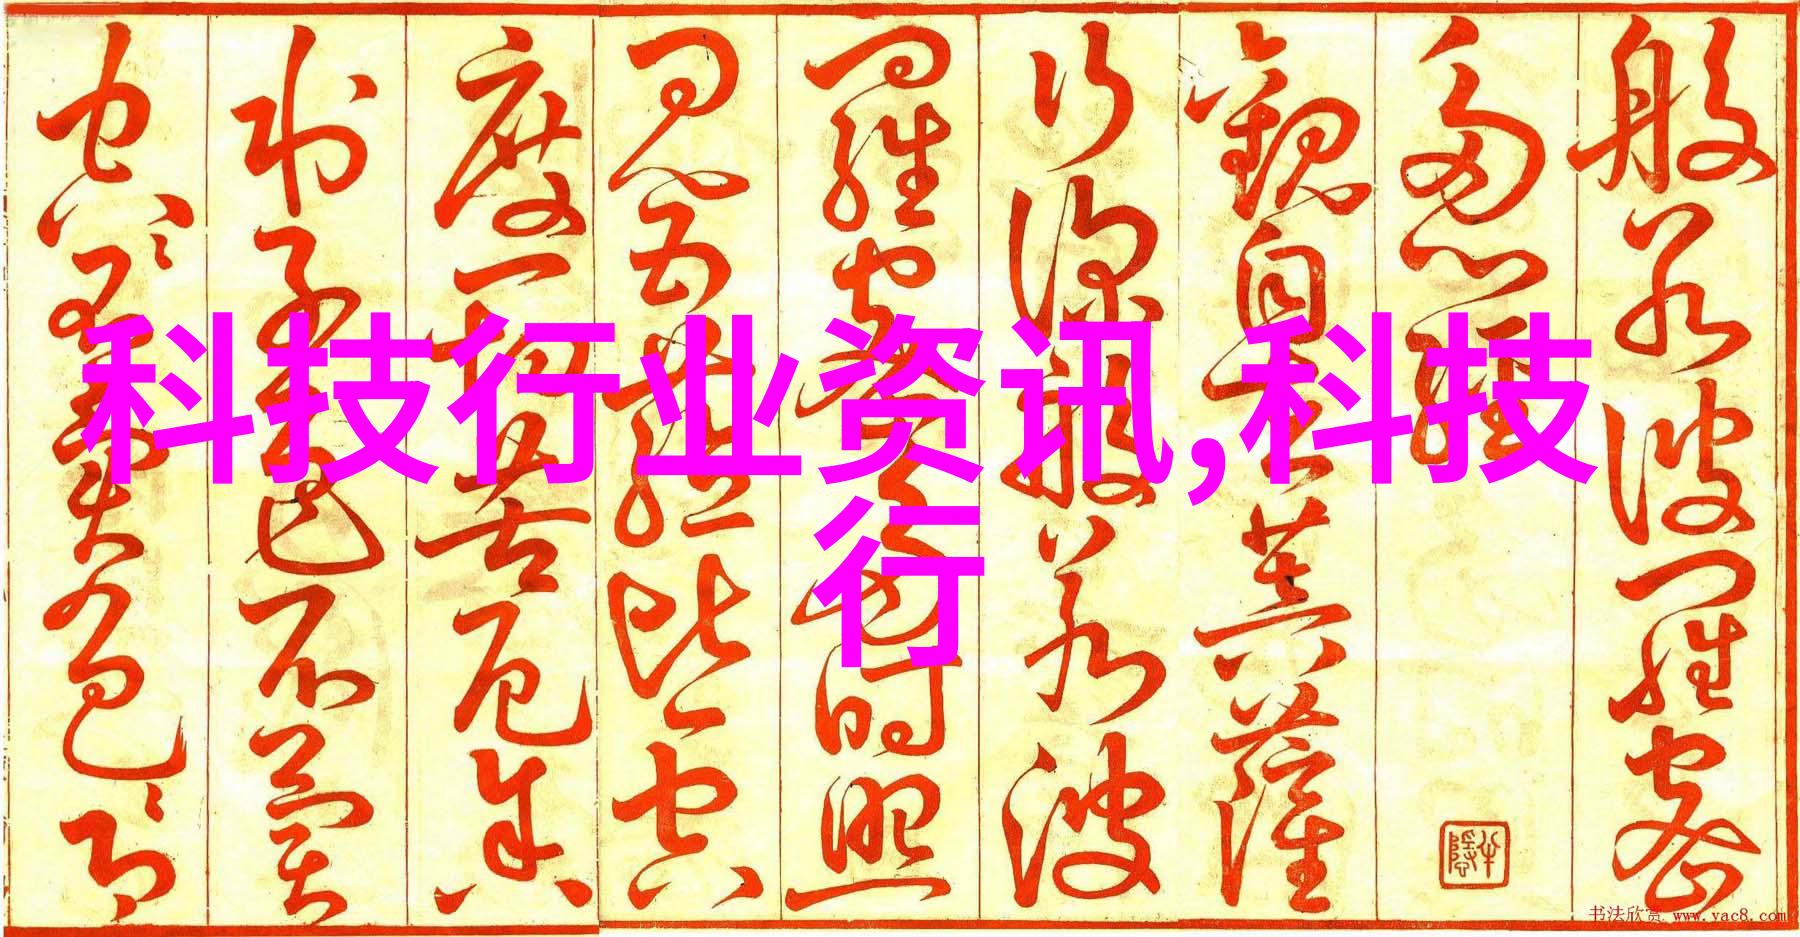 科技行业资讯,科技
行
般若波羅蜜
多心經
觀自在菩薩
行深般若波
羅蜜多時照
見五蘊皆空
度一切苦厄舍
利子色不異
空〻不異色〻即
书法欣赏 www.yac8.com